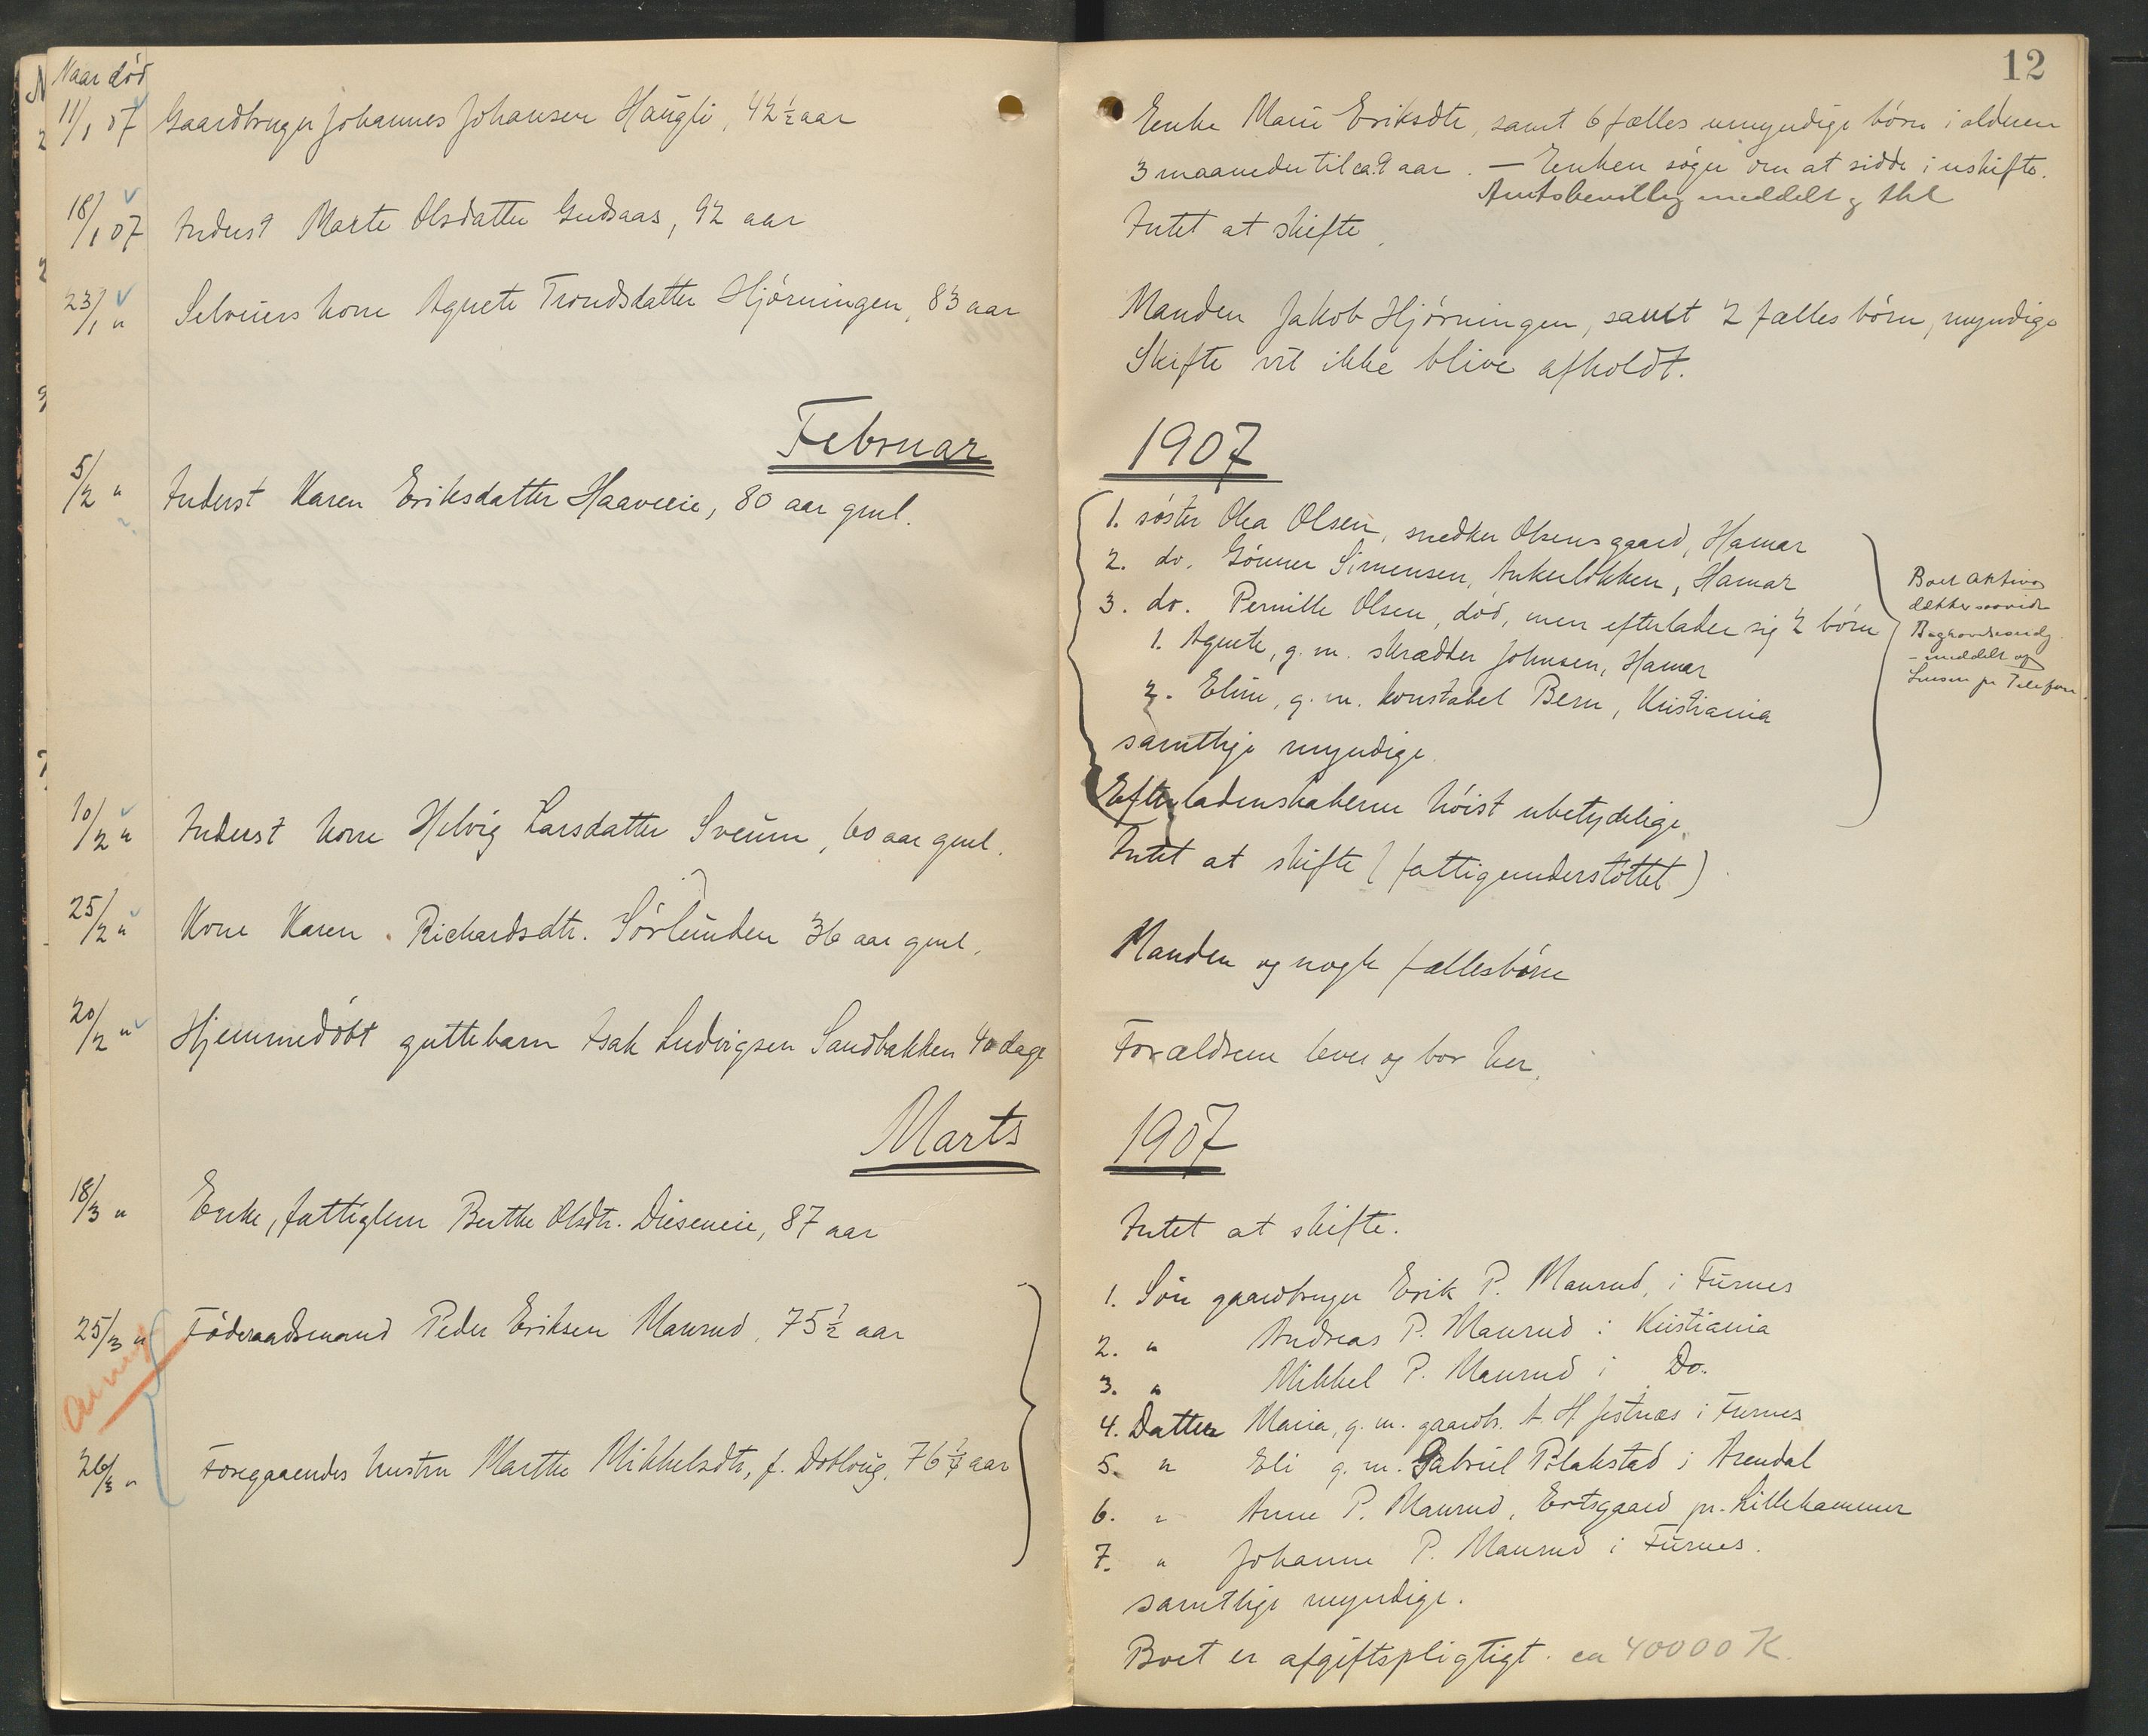 Naar død
11/1 07 Gaardbruger Johannes Johansen Haugli, 42½ aar
18/1 07 Inderst Marte Olsdatter Gudsaas, 92 aar
23/1 " Selveiers kone Agnete Trondsdatter Hjørningen, 83 aar
Februar
5/2 " Inderst Karen Eriksdatter Haaveeie, 80 aar gml.
10/2 " Inderst kone Helvig Larsdatter Sveum, 60 aar gml.
25/2 " Kone Karen Richardsdtr. Sørlunden 36 aar gml.
20/2 " Hjemmedøbt guttebarn Isak Ludvigsen Sandbakken 40 dage
Marts
18/3 " Enke, fattiglem Berthe Olsdtr. Dieseneie, 87 aar
25/3 " Føderaadsmand Peder Eriksen Maurud, 75½ aar
26/3 " Foregaaendes hustru Marthe Mikkelsdtr, f. Dobloug, 76¼ aar
12
Enke Marie Eriksdtr, samt 6 fælles umyndige børn i alderen
3 maaneder til ca. 9 aar. — Enken søger om at sidde i uskifte.
Amtsbevillg meddelt
Intet at skifte
Manden Jakob Hjørningen, samt 2 fælles børn, myndige
Skifte vil ikke blive afholdt.
1907
1. søster Olea Olsen, snedker Olsens gaard, Hamar
2. do. Gønner Simensen, Ankerløkken, Hamar
3. do. Pernille Olsen, død, men efterlader sig 2 børn
1. Agnete, g. m. skrædder Johnsen, Hamar
2. Eline, g. m. konstabel Bern, Kristiania
samtlige myndige.
Efterladenskaberne høist ubetydelige.
Boets aktiva
dækker
meddelt
pr Telefon.
Intet at skifte (fattigunderstøttet)
Manden og nogle fællesbørn
Forældrene lever og bor her.
1907
Intet at skifte.
1. Søn gaardbruger Erik P. Maurud, i Furnes
2. " Andreas P. Maurud i Kristiania
3. " Mikkel P. Maurud i Do.
4. Datter Maria, g. m. gaardb. A. H. Jestnæs i Furnes
5. " Eli g. m. Gabriel Pilakstad i Arendal
6. " Anne P. Maurud, Ertsgaard pr. Lillehammer
7. " Johanne P. Maurud i Furnes.
samtlige myndige.
Boet er afgiftspligtigt. ca 40000 K.